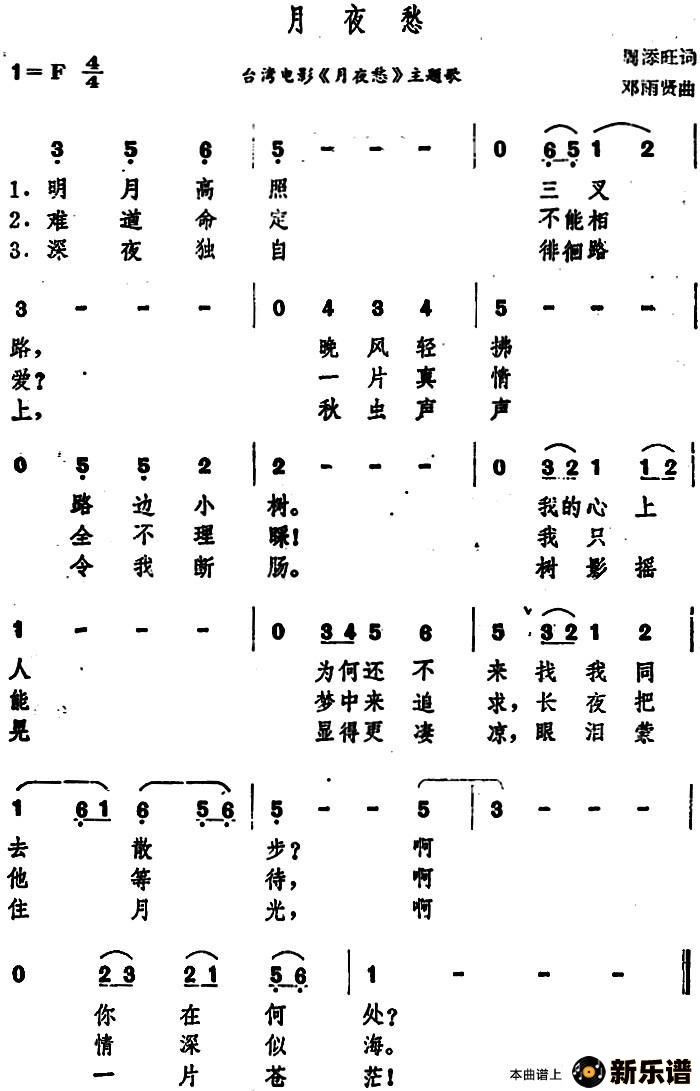 月夜愁
1=F 4/4
台湾电影《月夜愁》主题歌
周添旺词
邓雨贤曲
3 5 6 | 5 - - - | 0 6 5 1 2 |
1. 明月高照 三叉
2. 难道命定 不能相
3. 深夜独自 徘徊路
3 - - - | 0 4 3 4 | 5 - - - |
路, 晚风轻拂
爱? 一片真情
上, 秋虫声声
0 5 5 2 | 2 - - - | 0 3 2 1 1 2 |
路边小树。 我的心上
全不理睬! 我只
令我断肠。 树影摇
1 - - - | 0 3 4 5 6 | 5 3 2 1 2 |
人 为何还不来找我同
能 梦中来追求,长夜把
晃 显得更凄凉,眼泪蒙
1 6 1 6 5 6 | 5 - - 5 | 3 - - - |
去散步? 啊
他等待, 啊
住月光, 啊
0 2 3 2 1 5 6 | 1 - - - ‖
你在何处?
情深似海。
一片苍茫!
本曲谱上 新乐谱